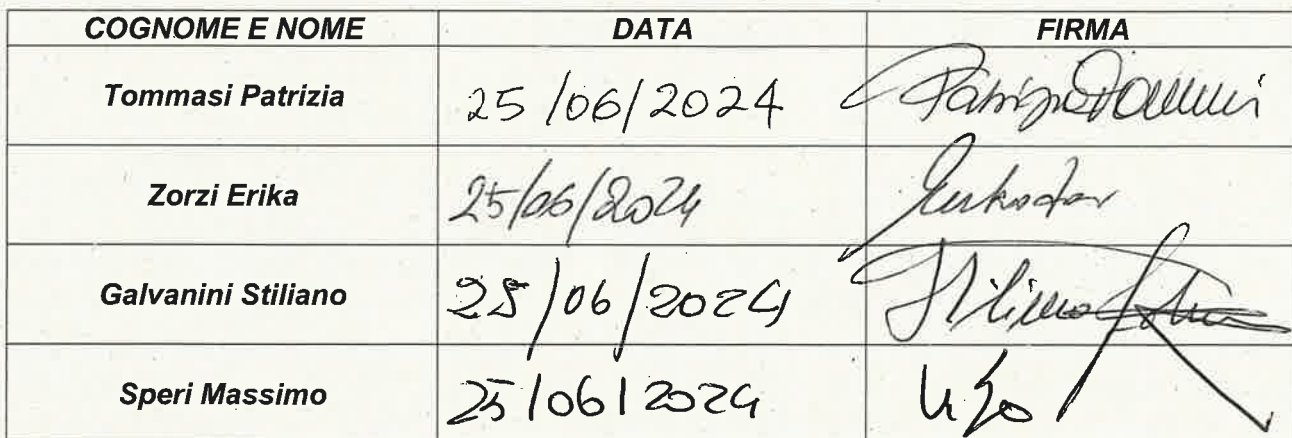 COGNOME E NOME DATA FIRMA
Tommasi Patrizia 25/06/2024
Zorzi Erika 25/06/2024
Galvanini Stiliano 25/06/2024
Speri Massimo 25/06/2024